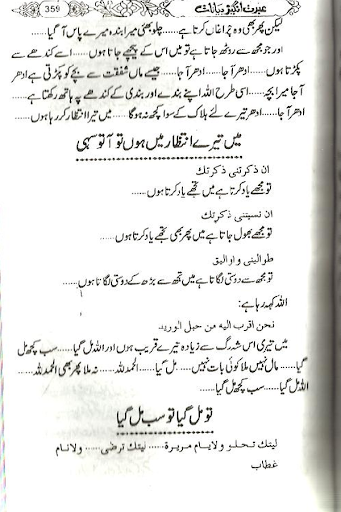 عبرت انگیز بیانات 359
لیکن پھر بھی وہ چراغاں کرتا ہے...... چلو بھئی میرا بندہ میرے پاس آ گیا......
اور جو مجھ سے روٹھ جاتا ہے تو میں اس کے پیچھے جاتا ہوں...... اسے کندھے سے
پکڑتا ہوں...... ادھر آ جا...... ادھر آ جا...... جیسے ماں شفقت سے بچے کو پکڑتی ہے ادھر
آ جا میرا بچہ...... اسی طرح اللہ اپنے بندے اور بندی کے کندھے پہ ہاتھ رکھتا ہے......
ادھر آ جا...... ادھر تیرے لئے ہلاکت کے سوا کچھ نہ ہوگا...... میں تیرا انتظار کر رہا ہوں......
میں تیرے انتظار میں ہوں تو آ تو سہی
ان ذكرتنی ذكرتك
تو مجھے یاد کرتا ہے میں تجھے یاد کرتا ہوں......
ان نسيتنی ذكرتك
تو مجھے بھول جاتا ہے میں پھر بھی تجھے یاد کرتا ہوں......
طوالینی و اوالیق
تو مجھ سے دوستی لگاتا ہے میں تجھ سے بڑھ کے دوستی لگاتا ہوں......
اللہ کہہ رہا ہے:
نحن اقرب اليه من حبل الوريد
میں تیری اس شہ رگ سے زیادہ تیرے قریب ہوں اور اللہ مل گیا...... سب کچھ مل
گیا...... مال نہیں ملا کوئی بات نہیں...... مل گیا...... الحمدللہ...... نہ ملا پھر بھی الحمدللہ......
اللہ مل گیا...... سب کچھ مل گیا......
تو مل گیا تو سب مل گیا
ليتك تحلو ولايام مريرة...... ليتك ترضى...... ولانام
غطاب